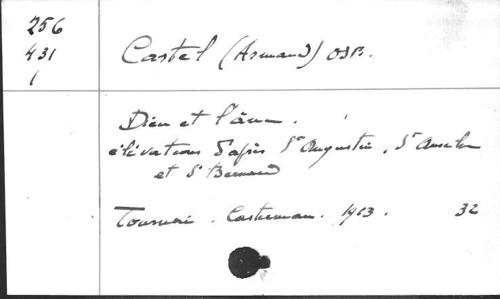 256
431
1
Castel (Armand) OSB.
Dieu et l'âme.
élévations d'après St Augustin, St Anselm
et St Bernard
Tournai. Casterman. 1913. 32